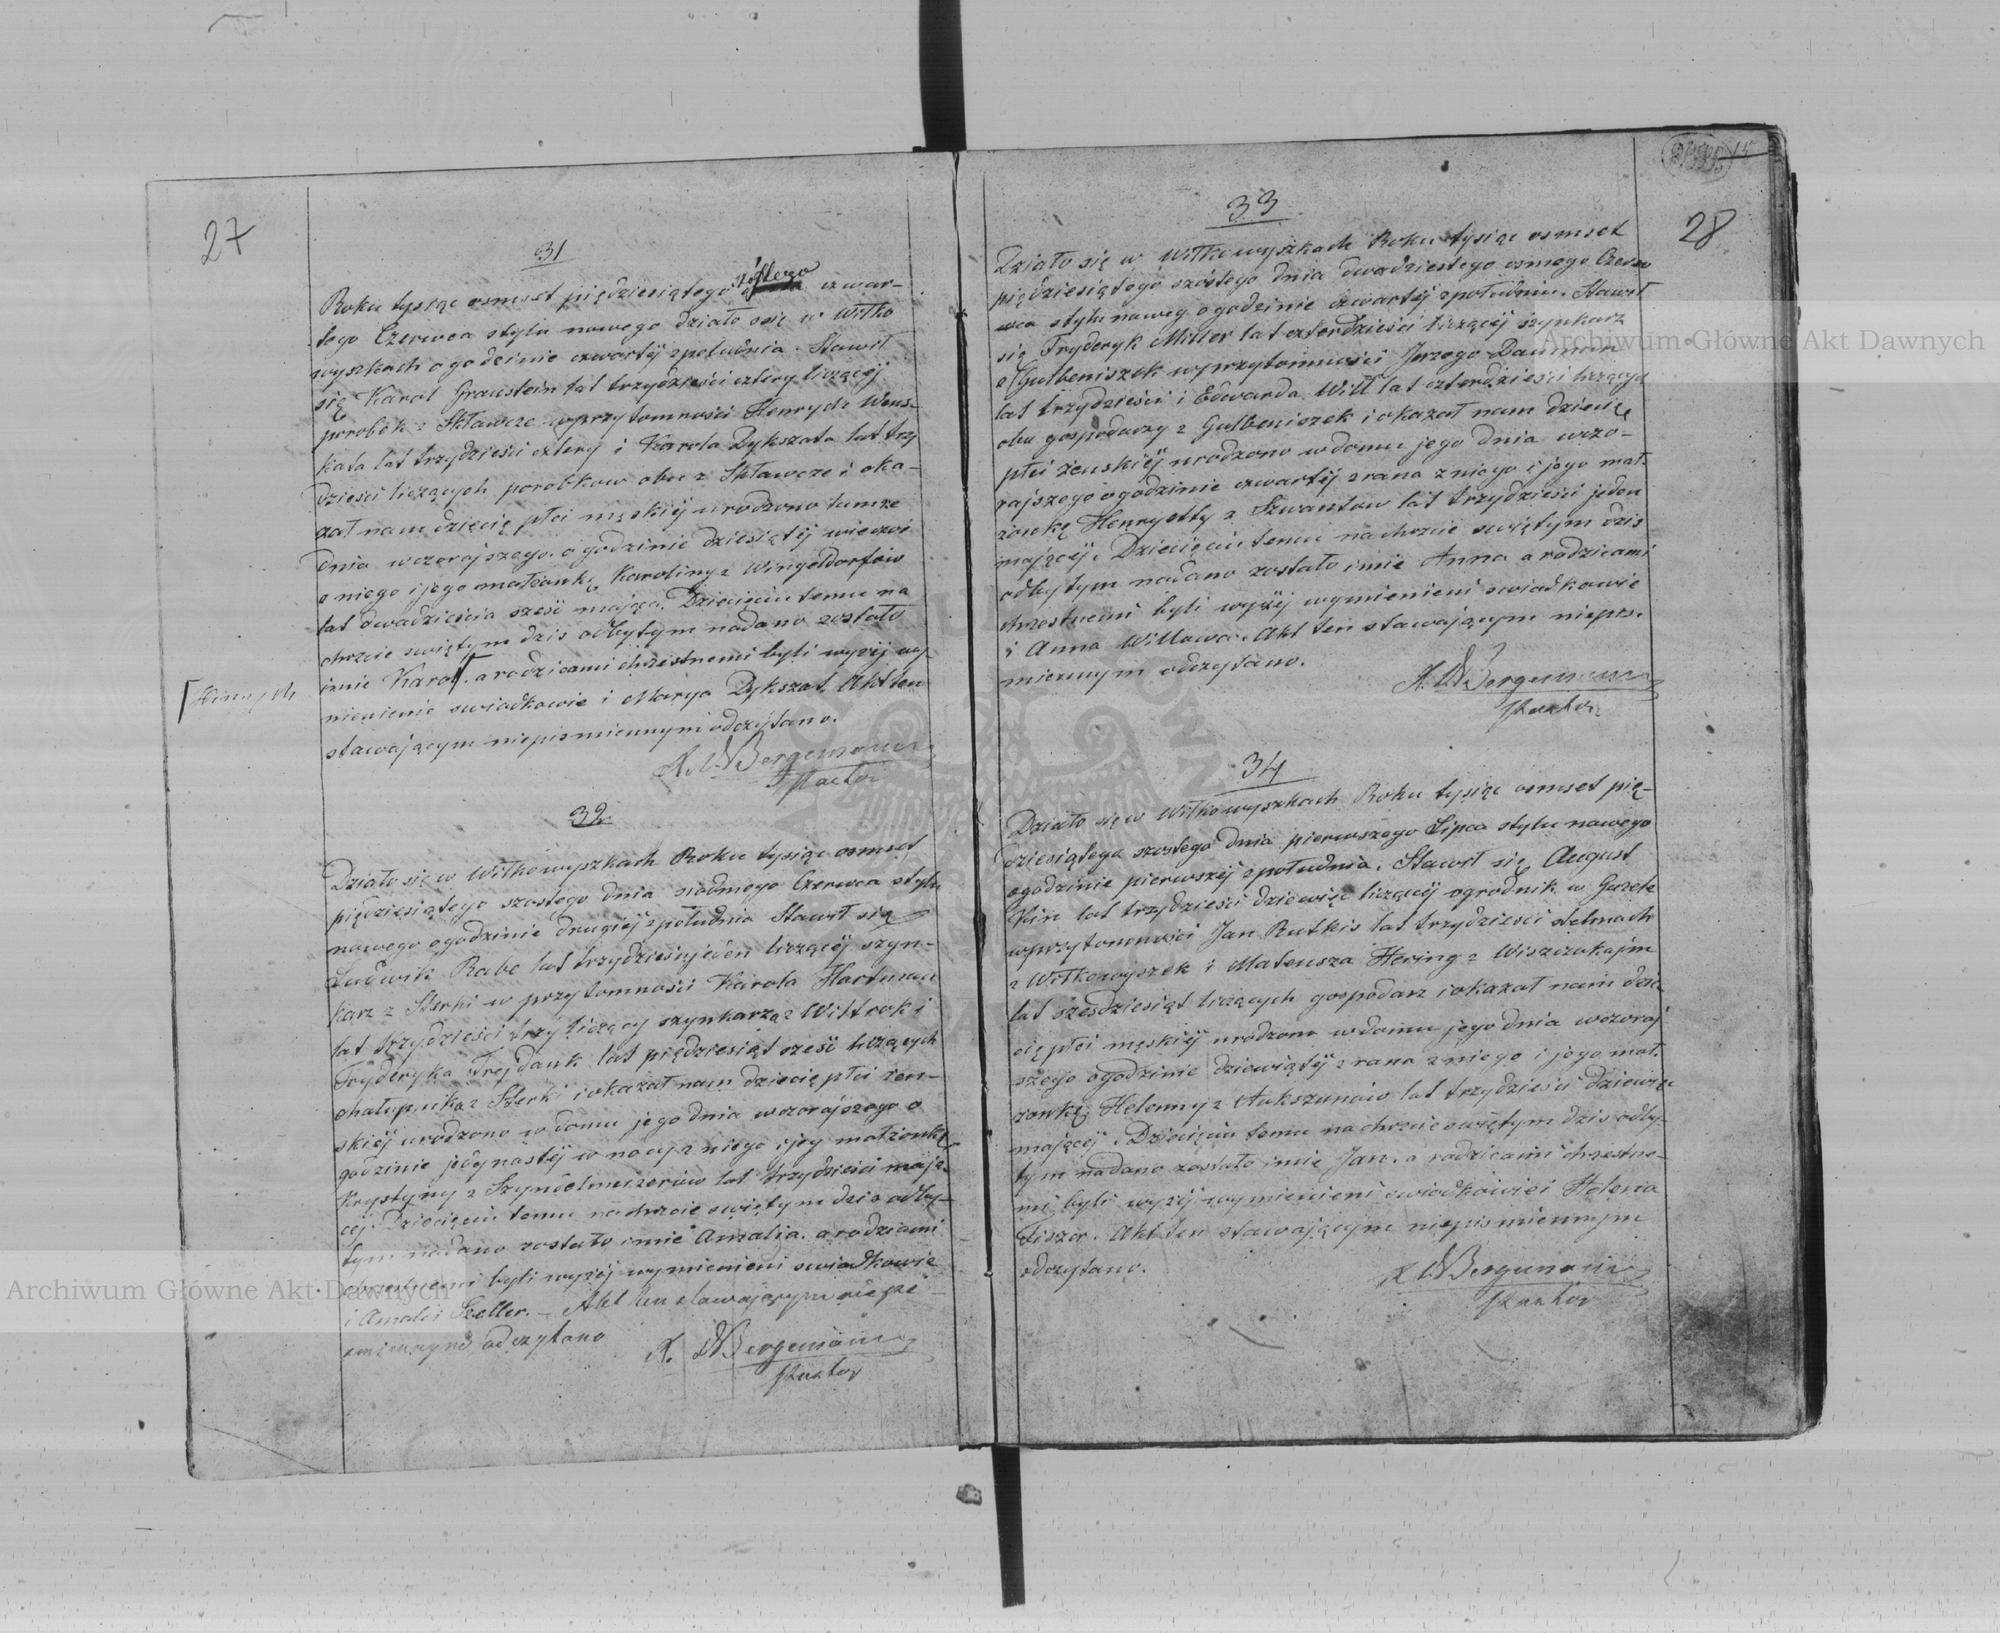 27
31
Roku tysiąc osmset piędziesiątego szóstego czwar-
tego Czerwca stylu nowego działo się w Wiłko
wyszkach o godzinie czwartéj z południa. Stawił
się Karol Graustein lat trzydzieści cztery liczącéj
porobek z Skławcze w przytomności Henrych Wens-
kata lat trzydzieści cztery i Karola Dykszata lat trzy
dzieści liczących porobkow obu z Skławcze i oka-
zał nam dziecię płci męskiéj urodzono tamże
dnia wczorajszego o godzinie dziesiątéj wieczor
z niego i jego małżonkę Karoliny z Wingeldorfów
lat dwadzieścia sześć mająca. Dziecięciu temu na
chrzcie swiętym dzis odbytym nadano zostało
imie Karol. a rodzicami chrzestnemi byli wyzéj wy-
mienienie swiadkowie i Marya Dykszat. Akt ten
stawającym niepismiennym odczytano.
Bergemann
Pastor
32
Działo się w Wiłkowyszkach Roku tysiąc osmset
piędziesiątego szostego dnia siodmego Czerwca stylu
nowego o godzinie drugiéj z południa Stawił się
Ludwik Rabe lat trzydzieści jeden liczącéj szyn-
karz z Sterki w przytomności Karola Hartman
lat trzydzieści trzy liczący szynkarza z Wiltrok i
Fryderyka Trejdank lat piędziesiąt sześć liczących
chałupnika z Szterk i okazał nam dziecię płci żen-
skiéj urodzono w domu jego dnia wczorajszego o
godzinie jedynastéj w nocy z niego i jey małżonkę
Krystyny z Szyndelmeizerów lat trzydzieści mają-
céj Dziecięciu temu na chrzcie swiętym dzis odby-
tym nadano zostało imie Amalia. a rodzicami
chrzestnemi byli wyzéj wymienieni swiadkowie
i Amalii Szeller. - Akt ten stawającym niepi-
smiennym odczytano
Bergemann
Pastor
28
33
Działo się w Wiłkowyszkach Roku tysiąc osmset
piędziesiątego szóstego dnia dwadziestego osmego Czer
wca stylu noweg o godzinie czwartéj z południu. Stawił
się Fryderyk Miller lat czterdzieści liczącéj szynkarz
z Gulbeniszek w przytomności Jerzego Dauman
lat trzydzieści i Edwarda Will lat czterdzieści liczących
obu gospodarzy z Gulbeniszek i okazał nam dziecię
płci żenskiéj urodzono w domu jego dnia wczo-
rajszego o godzinie czwartéj z rana z niego i jego mał-
żonkę Henryetty z Szwantow lat trzydzieści jeden
mającéj. Dziecięciu temu na chrzcie swiętym dzis
odbytym nadano zostało imie Anna a rodzicami
chrzestnemi byli wyzéj wymienieni swiadkowie
i Anna Willowa. Akt ten stawającym niepis-
miennym odczytano.
Bergemann
Pastor
34
Działo się w Wiłkowyszkach Roku tysiąc osmset pię-
dziesiątego szostego dnia pierwszego Lipca stylu nowego
o godzinie pierwszéj z południa. Stawił się August
Kin lat trzydzieści dziewięć liczącéj ogrodnik w Guzele
w przytomności Jan Rutkis lat trzydzieści stelmach
z Wiłkowyszek i Mateusza Hering z Wiszczokajm
lat szesdziesiąt liczących gospodarz i okazał nam dzie
cię płci męskiéj urodzone w domu jego dnia wczoraj
szego o godzinie dziewiątéj z rana z niego i jego mał-
żonkę Helenny z Aukszunów lat trzydzieści dziewięć
mającéj. Dziecięciu temu na chrzcie swiętym dzis odby-
tym nadano zostało imie Jan. a rodzicami chrzestne-
mi byli wyzéj wymienieni swiadkowie i Helena
Fiszer. Akt ten stawającym niepismiennym
odczytano.
Bergemann
Pastor
Archiwum Główne Akt Dawnych
Archiwum Główne Akt Dawnych